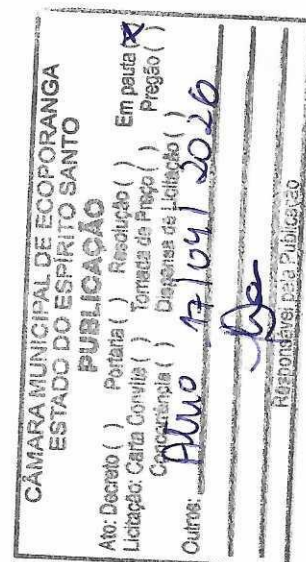 CÂMARA MUNICIPAL DE ECOPORANGA
ESTADO DO ESPÍRITO SANTO
PUBLICAÇÃO
Ato: Decreto ( ) Portaria ( ) Resolução ( ) Em pauta (X)
Licitação: Carta Convite ( ) Tomada de Preço ( ) Pregão ( )
Concorrência ( ) Dispensa de Licitação ( )
Outros: 17/04/2026
Responsável pela Publicação